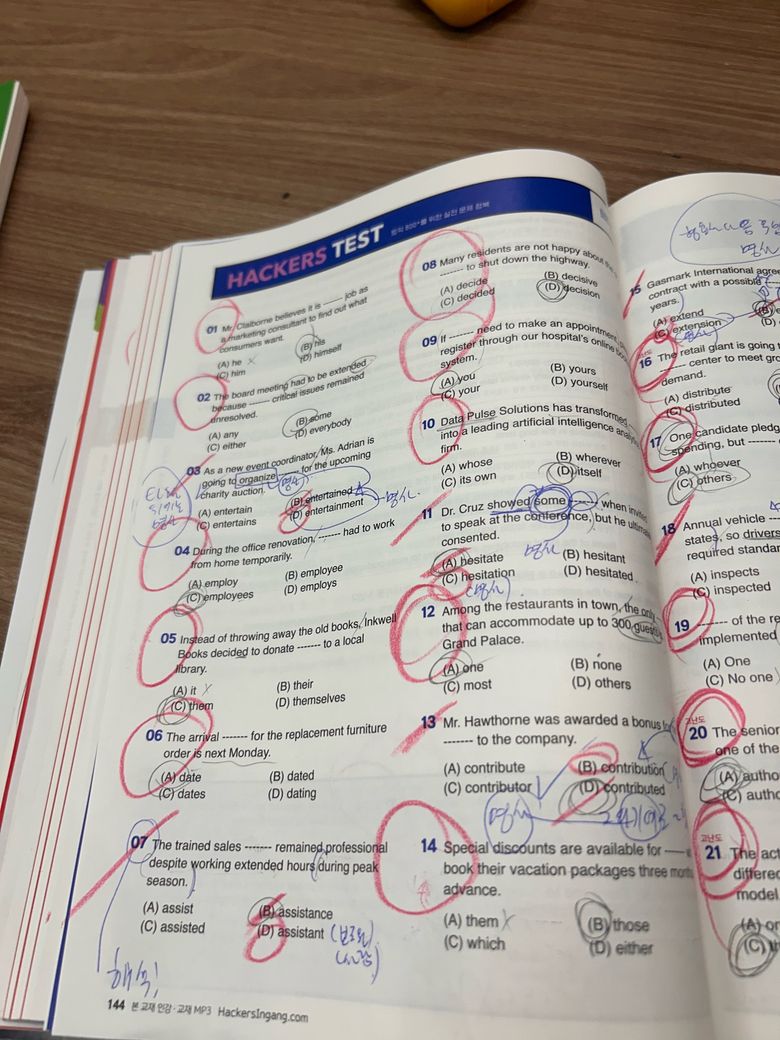 HACKERS TEST
01 Mr. Claiborne believes it is ------ job as
a marketing consultant to find out what
consumers want.
(A) he (B) his
(C) him (D) himself
02 The board meeting had to be extended
because ------ critical issues remained
unresolved.
(A) any (B) some
(C) either (D) everybody
03 As a new event coordinator, Ms. Adrian is
going to organize ------ for the upcoming
charity auction.
(A) entertain (B) entertained
(C) entertains (D) entertainment
명사
04 During the office renovation, ------- had to work
from home temporarily.
(A) employ (B) employee
(C) employees (D) employs
05 Instead of throwing away the old books, Inkwell
Books decided to donate ------- to a local
library.
(A) it (B) their
(C) them (D) themselves
06 The arrival ------- for the replacement furniture
order is next Monday.
(A) date (B) dated
(C) dates (D) dating
07 The trained sales ------- remained professional
despite working extended hours during peak
season.
(A) assist (B) assistance
(C) assisted (D) assistant
해석!
144 본 교재 인강·교재 MP3 HackersIngang.com
08 Many residents are not happy about the
------ to shut down the highway.
(A) decide (B) decisive
(C) decided (D) decision
09 If ------ need to make an appointment,
register through our hospital's online
system.
(A) you (B) yours
(C) your (D) yourself
10 Data Pulse Solutions has transformed
into a leading artificial intelligence
firm.
(A) whose (B) wherever
(C) its own (D) itself
11 Dr. Cruz showed some ------ when
to speak at the conference, but he
consented.
명사
(A) hesitate (B) hesitant
(C) hesitation (D) hesitated
(명사)
12 Among the restaurants in town, the only
that can accommodate up to 300 guests
Grand Palace.
(A) one (B) none
(C) most (D) others
13 Mr. Hawthorne was awarded a bonus
------- to the company.
(A) contribute (B) contribution
(C) contributor (D) contributed
명사
14 Special discounts are available for
book their vacation packages three
advance.
(A) them (B) those
(C) which (D) either
명사
15 Gasmark International
contract with a possible
years.
(A) extend
(C) extension
고난도
16 The retail giant is going
------ center to meet
demand.
(A) distribute
(C) distributed
17 One candidate
spending, but -------
(A) whoever
(C) others
18 Annual vehicle
states, so drivers
required
(A) inspects
(C) inspected
19 ------- of the
implemented
(A) One
(C) No one
고난도
20 The senior
one of the
(A)
(C)
고난도
21 The
model
(A)
(C)